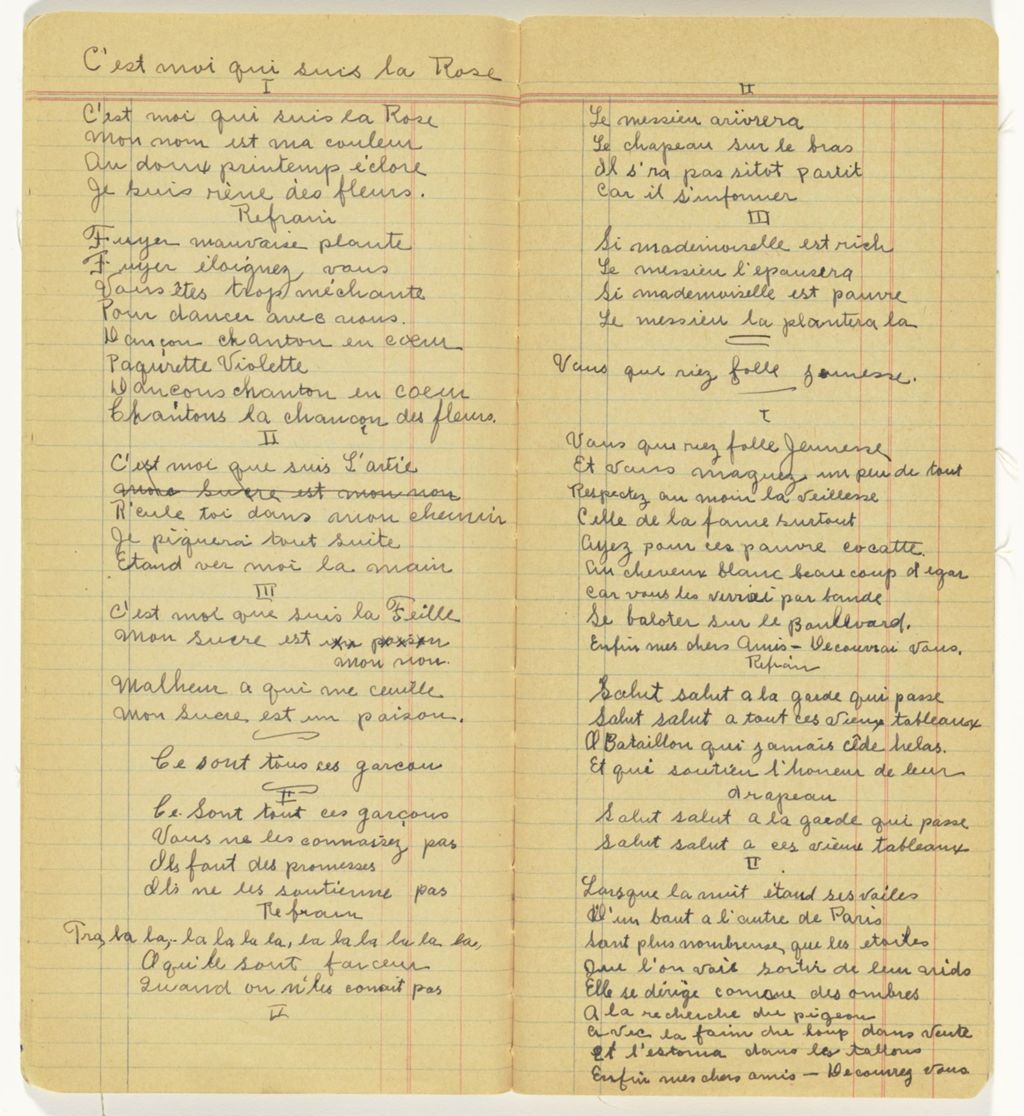 C'est moi qui suis la Rose
I
C'est moi qui suis la Rose
Mon nom est ma couleur
Au doux printemps éclore
Je suis rène des fleurs.
Refrain
Fuyer mauvaise plante
Fuyer éloignez vous
Vous êtes trop méchante
Pour dancer avec nous.
Dançon chanton en cœur
Paqurette Violette
Dançons chanton en coeur
Chantons la chançon des fleurs.
II
C'est moi que suis L'artie
mon sucre est mon non
R'cule toi dans mon chemin
Je piquerai tout suite
Etand ver moi la main
III
C'est moi que suis la Feille
Mon sucre est un poison
mon non.
Malheur a qui me ceuille
Mon sucre est un paison.
Ce sont tous ces garcon
I
Ce Sont tout ces garçons
Vous ne les connaisez pas
Ils font des promesses
Ils ne les soutienne pas
Refrain
Tra la la, la la la la, la la la la la la,
A qu'ile sont farceur
Quand on n'les conait pas
II
Le messieu arivrera
Le chapeau sur le bras
Il s'ra pas sitot partit
Car il s'informer
III
Si mademoiselle est rich
Le messieu l'epousera
Si mademoiselle est pauvre
Le messieu la plantera la
Vous que riez folle jeunesse.
I
Vous que riez folle Jeunesse
Et vous maquez un peu de tout
Respectez au moin la veillesse
Celle de la fame surtout
Ayez pour ces pauvre cocatte
Au cheveux blanc beaucoup d'egar
Car vous les verrai par bande
Se baloter sur le Boullvard.
Enfin mes chers Amis - Decouvrai Vous.
Refrain
Salut salut a la garde qui passe
Salut salut a tout ces vieux tableaux
A Bataillon qui jamais cède helas.
Et qui soutien l'honeur de leur
drapeau
Salut salut a la garde qui passe
Salut salut a ces vieux tableaux
II
Lorsque la nuit étand ses vailes
D'un baut a l'autre de Paris
Sont plus nombreuse que les etoiles
Que l'on vois sortir de leur nids
Elle se dérige comme des ombres
A la recherche du pigeon
avec la faim du loup dans vente
et l'estoma dans les tallons
Enfin mes chers amis - Decouvrez vous